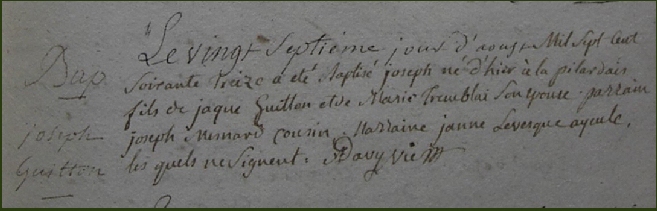 Bap
joseph
Guitton
Le vingt Septième jour d'aoust Mil Sept Cent
Soixante treize a été Baptisé joseph né d'hier à la pilardais
fils de jaque Guitton et de Marie Tremblai Son epouse. parrain
joseph Mesnard cousin. Marraine janne Levesque ayeule,
les quels ne Signent.